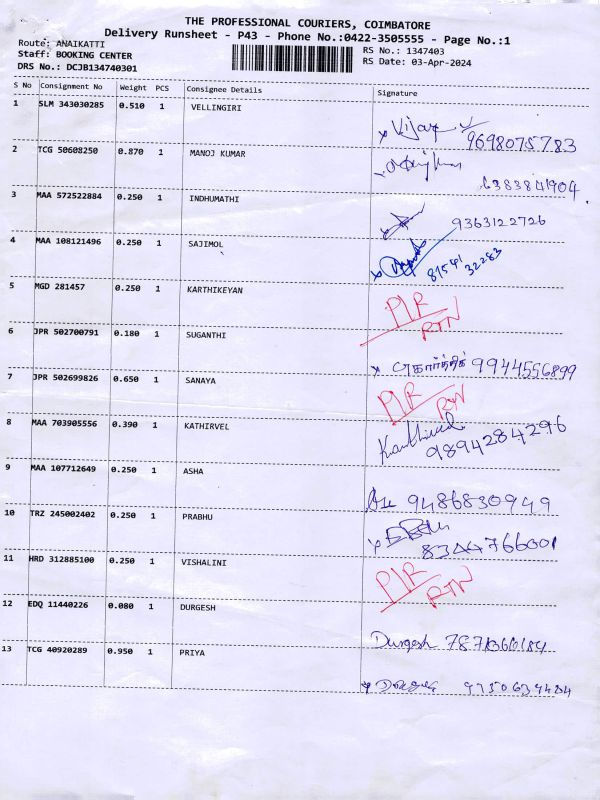 THE PROFESSIONAL COURIERS, COIMBATORE
Delivery Runsheet - P43 - Phone No.:0422-3505555 - Page No.:1
Route: ANAIKATTI
RS No.: 1347403
Staff: BOOKING CENTER
RS Date: 03-Apr-2024
DRS No.: DCJB134740301
S No Consignment No Weight PCS Consignee Details Signature
1 SLM 343030285 0.510 1 VELLINGIRI
x Vijay 9698075783
2 TCG 50608250 0.870 1 MANOJ KUMAR
6383841904
3 MAA 572522884 0.250 1 INDHUMATHI
9363122726
4 MAA 108121496 0.250 1 SAJIMOL
81541 32283
5 MGD 281457 0.250 1 KARTHIKEYAN
P/R
RTN
6 JPR 502700791 0.180 1 SUGANTHI
x கொார்த்திக் 9944556899
7 JPR 502699826 0.650 1 SANAYA
P/R RTN
8 MAA 703905556 0.390 1 KATHIRVEL
Kathirvel 9894284296
9 MAA 107712649 0.250 1 ASHA
9486830949
10 TRZ 245002402 0.250 1 PRABHU
8344766001
11 HRD 312885100 0.250 1 VISHALINI
P/R
RTN
12 EDQ 11440226 0.080 1 DURGESH
Durgesh
13 TCG 40920289 0.950 1 PRIYA